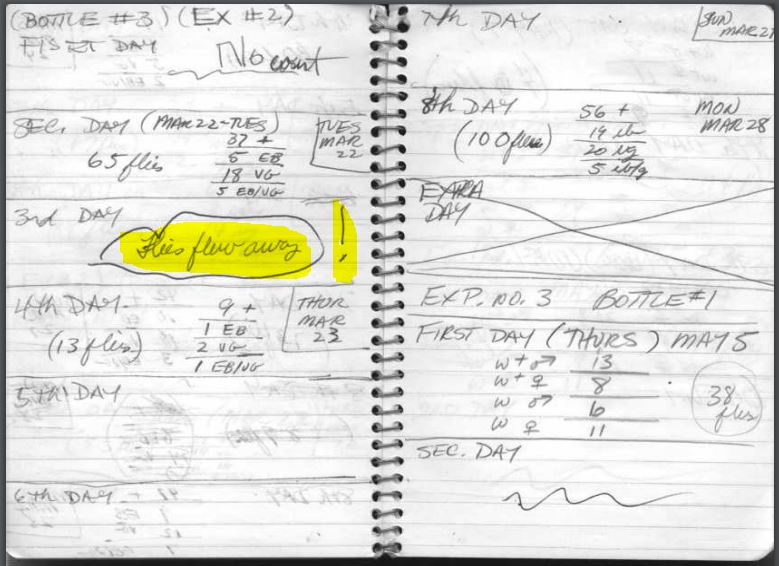 (BOTTLE #3) (EX #2)
FIRST DAY
No count
SEC. DAY (MAR 22-TUES)
TUES
MAR
22
65 flies
37 +
5 EB
18 VG
5 EB/VG
3rd DAY
Flies flew away !
4TH DAY
THUR
MAR
23
(13 flies)
9 +
1 EB
2 VG
1 EB/VG
5TH DAY
6TH DAY
7th DAY
SUN
MAR 27
8th DAY
MON
MAR 28
(100 flies)
56 +
19 eb
20 vg
5 eb/vg
EXTRA
DAY
EXP. NO. 3 BOTTLE #1
FIRST DAY (THURS) MAY 5
w + ♂ 13
w + ♀ 8
w ♂ 6
w ♀ 11
38
flies
SEC. DAY